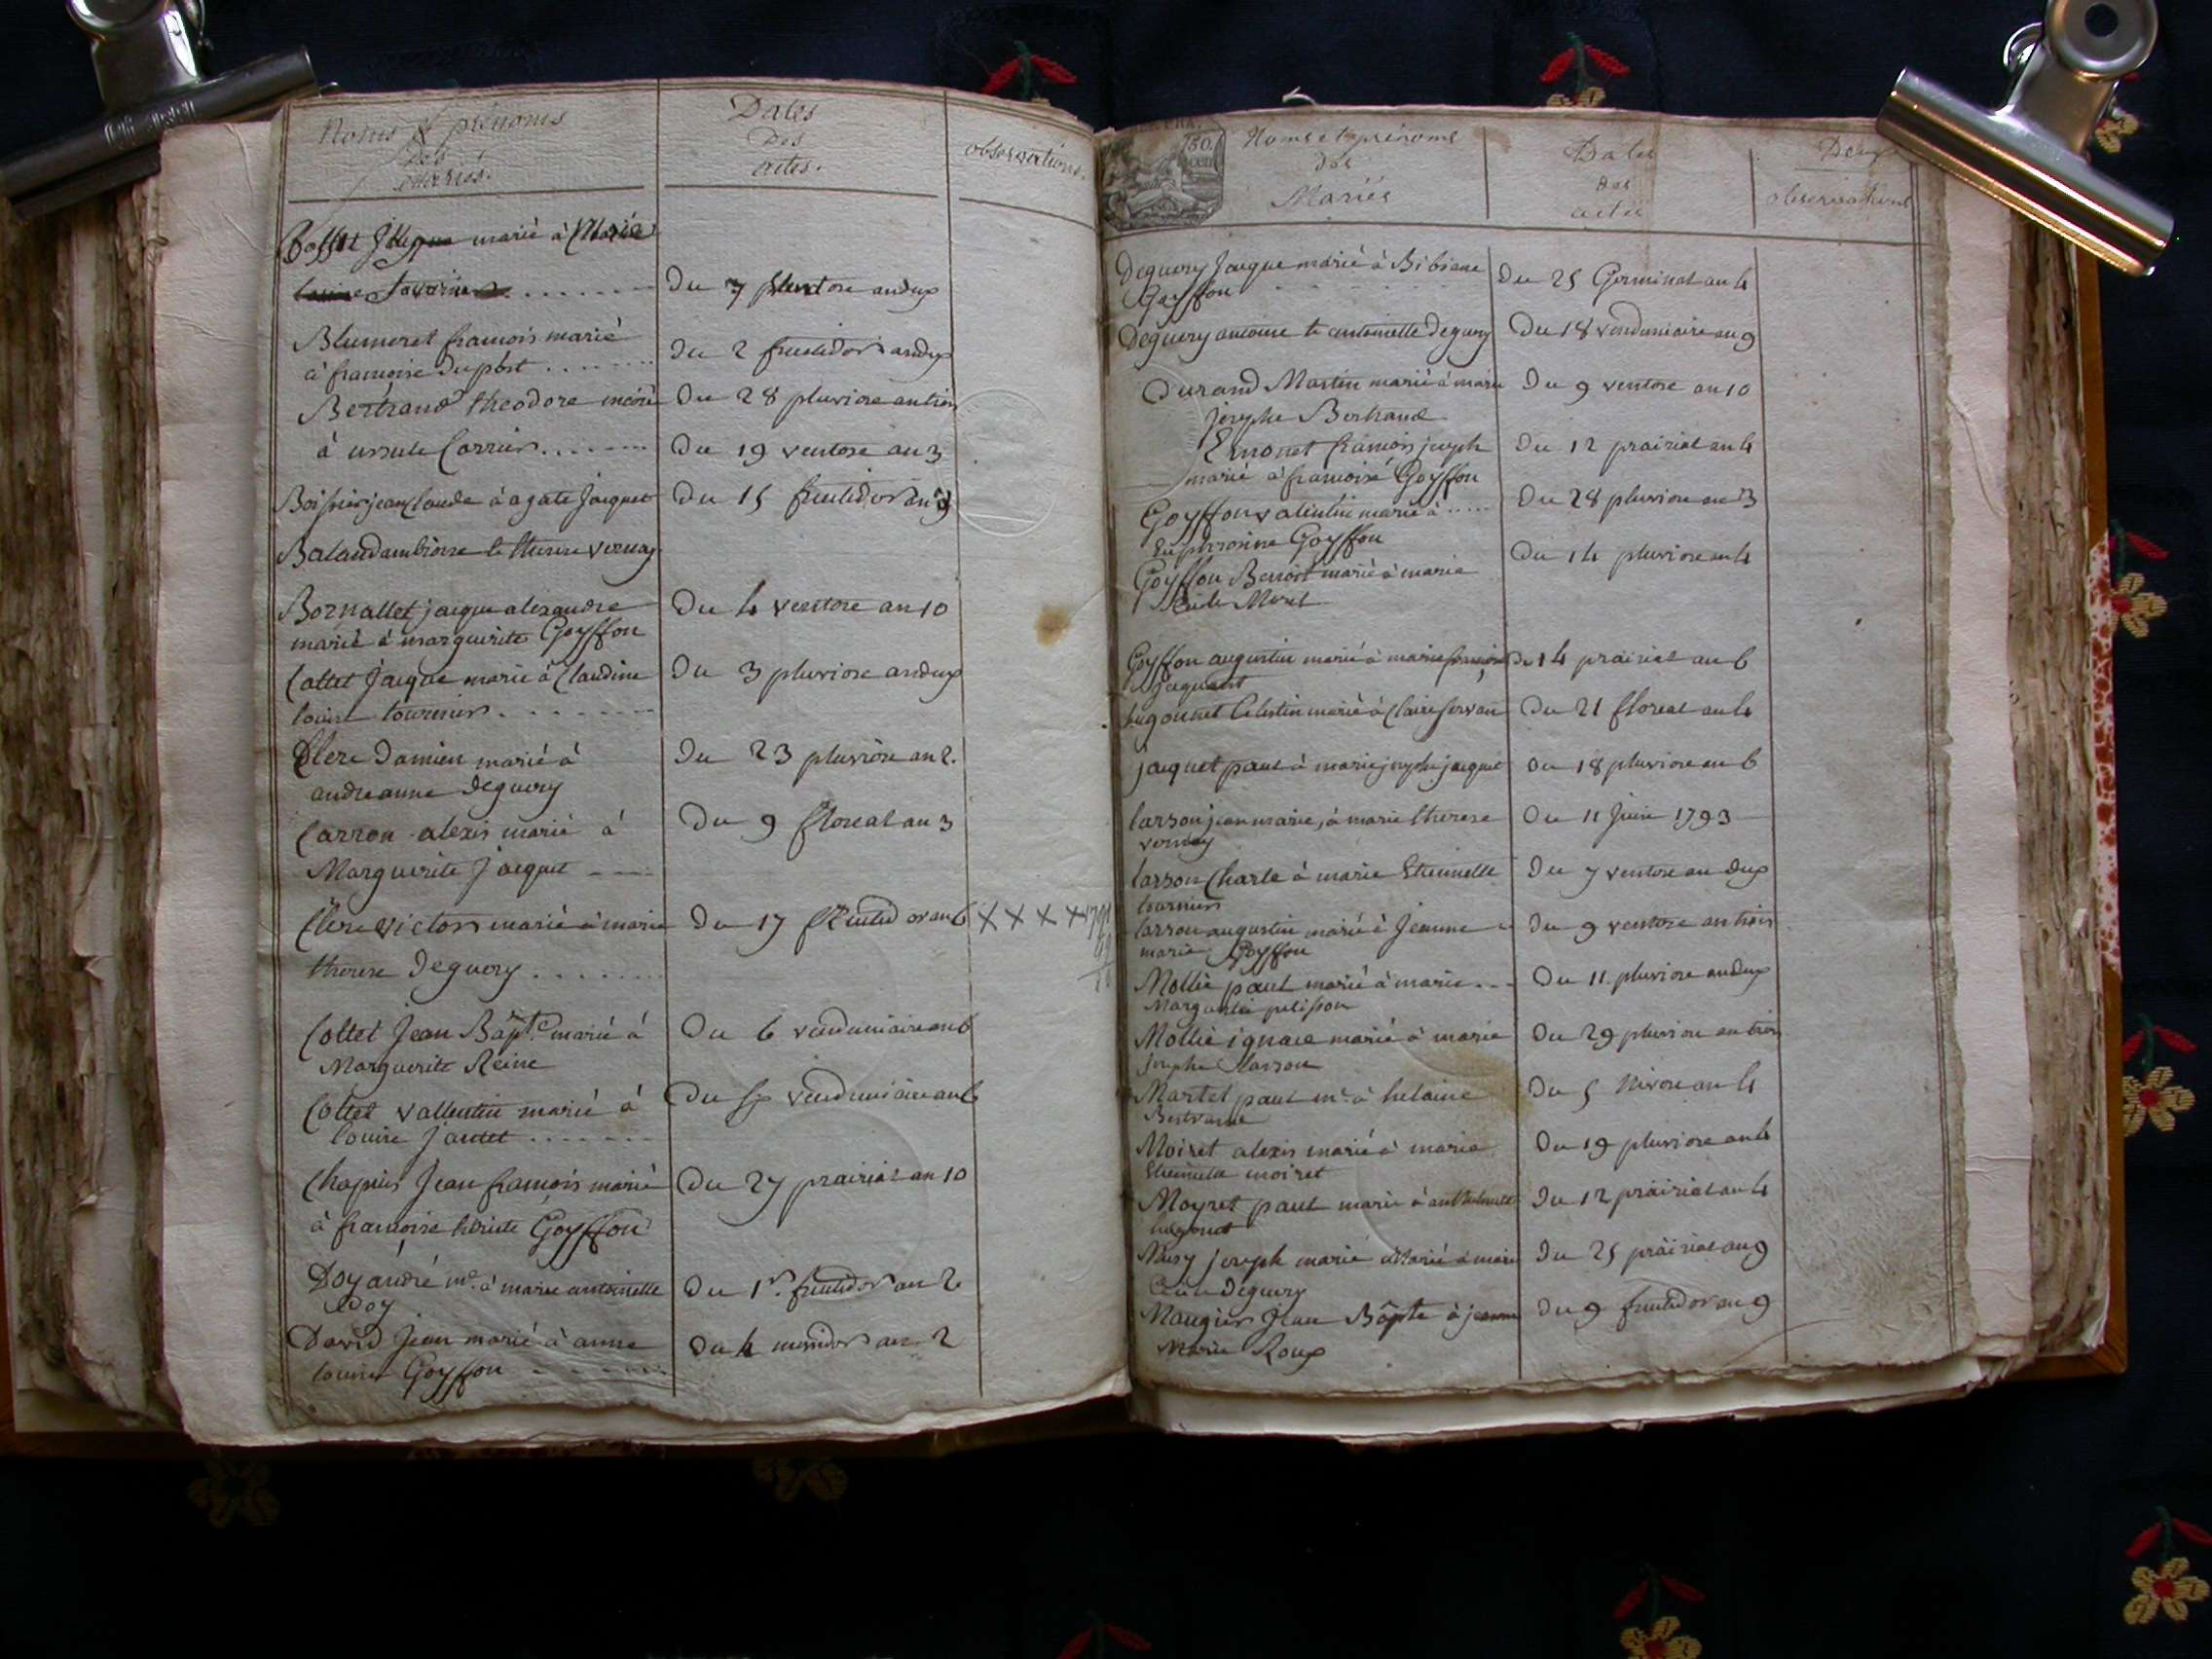 Noms et prénoms
Des
mariés.
Dates
Des
actes.
observations.
marié à Marie
Du 7 ventose an dux
Blumeret francois marié
à francoise Dupont
Du 2 fructidor an dux
Bertrand theodore marié
Du 28 pluviose an trois
à ursule Carrier
Du 19 ventose an 3
Boissier jean Claude à agate Jacquet
Du 15 fructidor an 9
Baland ambroise et therese vernay
Bornallet jacque alexandre
Du 4 ventose an 10
marié à marguerite Goyffon
Collet Jacque marié à Claudine
Du 3 pluviose an dux
louise tournier
Clerc Damien marié à
Du 23 pluviose an 2.
andreanne Deguery
Carron alexis marié à
Du 9 floreal an 3
Marguerite Jacquet
Clerc victor marié à marie
Du 17 fructidor an 6
X X X X 1791
therese Deguery
Collet Jean Bapte marié à
Du 6 vendemiaire an 6
Marguerite Reine
Collet vallentin marié à
Du six vendemiaire an 6
louise Jantet
Chapuis Jean francois marié
Du 27 prairial an 10
à francoise Goyffon
Doy andré mé à marie antoinette
Du 1r. fructidor an 2
Doy
David Jean marié à anne
Du 4 messidor an 2
louise Goyffon
Noms et prénoms
des
Mariés
Dates
des
actes
observations
Deguery Jacque marié à Bibiane
Du 25 Germinal an 4
Goyffon
Deguery antoine et antoinette Deguery
Du 18 vendemiaire an 9
Durand Martin marié à marie
Du 9 ventose an 10
josephe Bertrand
Emonet francois joseph
Du 12 prairial an 4
marié à francoise Goyffon
Goyffon valentin marié à
Du 28 pluviose an 3
Euphrosine Goyffon
Goyffon Benoit marié à marie
Du 14 pluviose an 4
Cecile Morel
Goyffon augustin marié à marie francoise
Du 14 prairial an 6
Jacquant
hugonnet Celestin marié à Claire servan
Du 21 floreal an 4
jacquet paul à marie josephe jacquet
Du 18 pluviose an 6
larson jean marie, à marie therese
Du 11 Juin 1793
vernay
larson Charle à marie Etiennette
Du 7 ventose an dux
tournier
larson augustin marié à Jeanne
Du 9 ventose an trois
marie Goyffon
Mollie paul marié à marie
Du 11 pluviose an dux
Marguerite pelisson
Mollie ignace marié à marie
Du 29 pluviose an trois
Josephe larson
Martel paul mé à helaine
Du 5 Nivose an 4
Bertrand
Moiret alexis marié à marie
Du 19 pluviose an 4
Etiennette moiret
Moyret paul marié à anthelmette
Du 12 prairial an 4
hugonet
joseph marié marié à marie
Du 25 prairial an 9
Cecile Deguery
Maugier Jean Bapte à jeanne
Du 9 fructidor an 9
Marie Roux